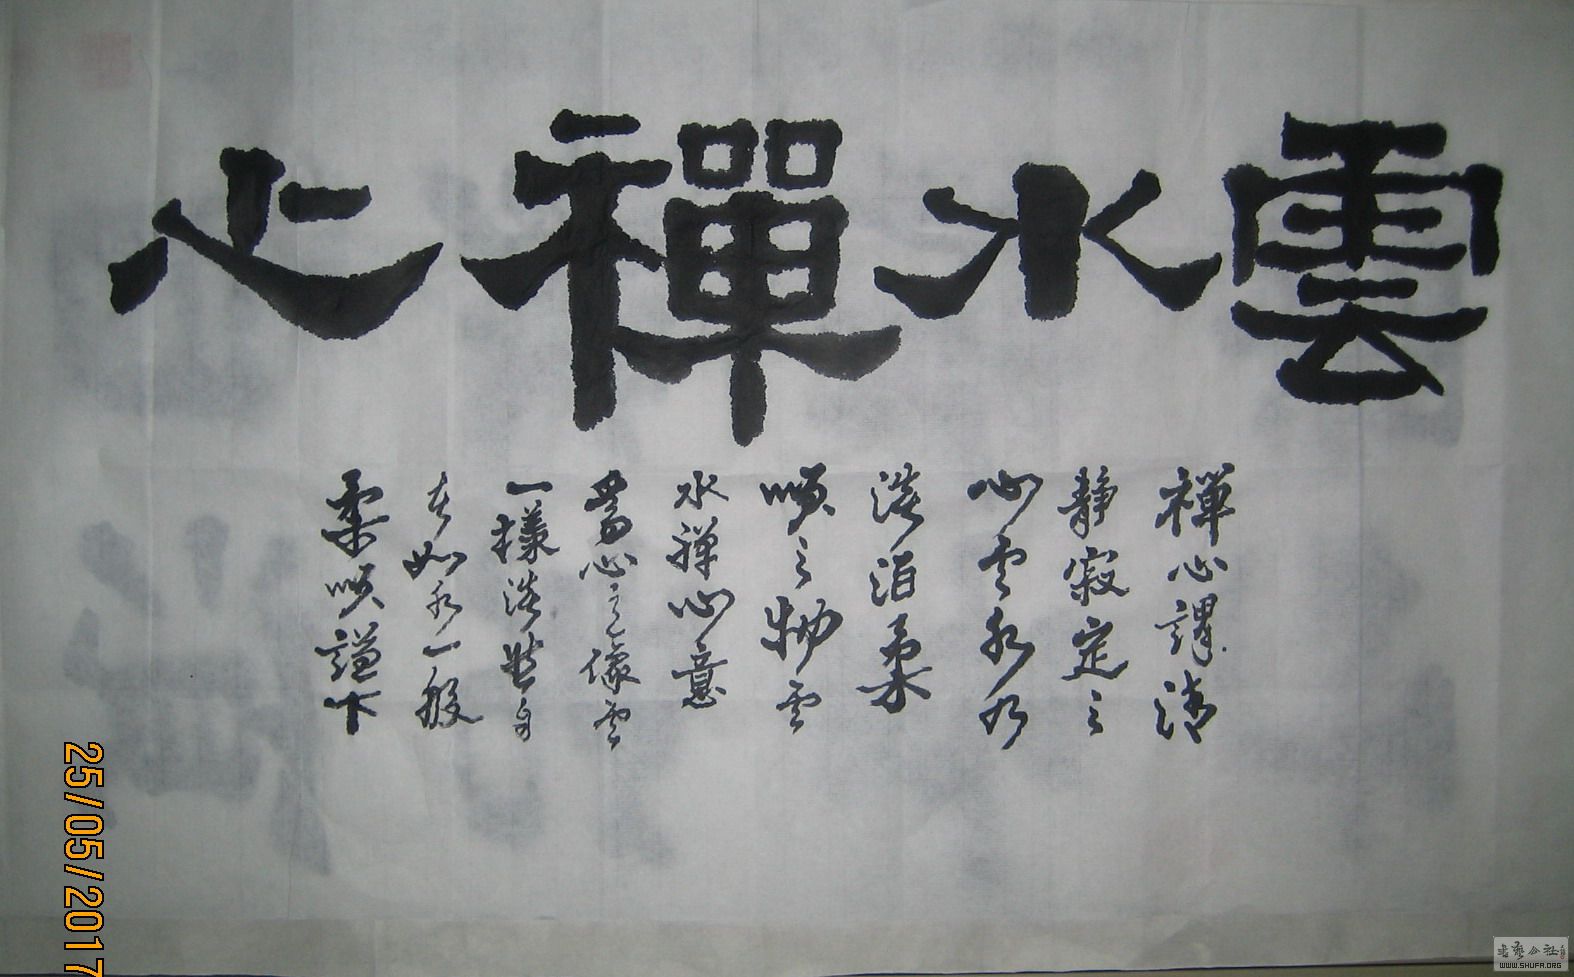 雲水禪心
禅心謂清
静寂定之
心雲水乃
淡泊柔
順之物雲
水禅心意
為心之像雲
一様淡然自
在如水一般
柔順謙下
25/05/2017
书法公社
WWW.SHUFA.ORG